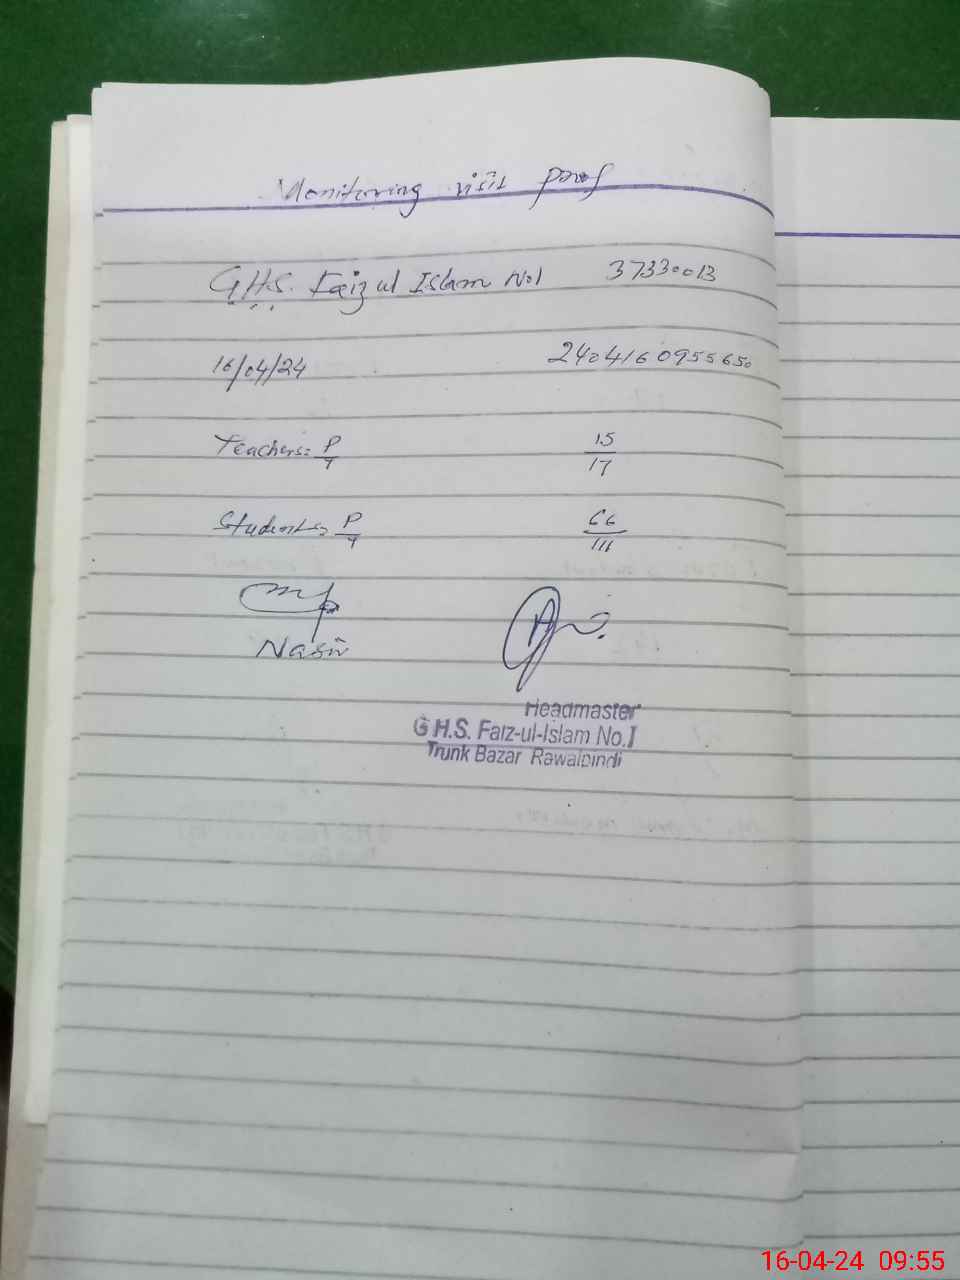 Monitoring visit proof
G.H.S. Faiz ul Islam No1 37330013
16/04/24 2404160955650
Teachers: P/T 15/17
Students: P/T 66/111
Nasir
Headmaster
G.H.S. Faiz-ul-Islam No.I
Trunk Bazar Rawalpindi
16-04-24 09:55